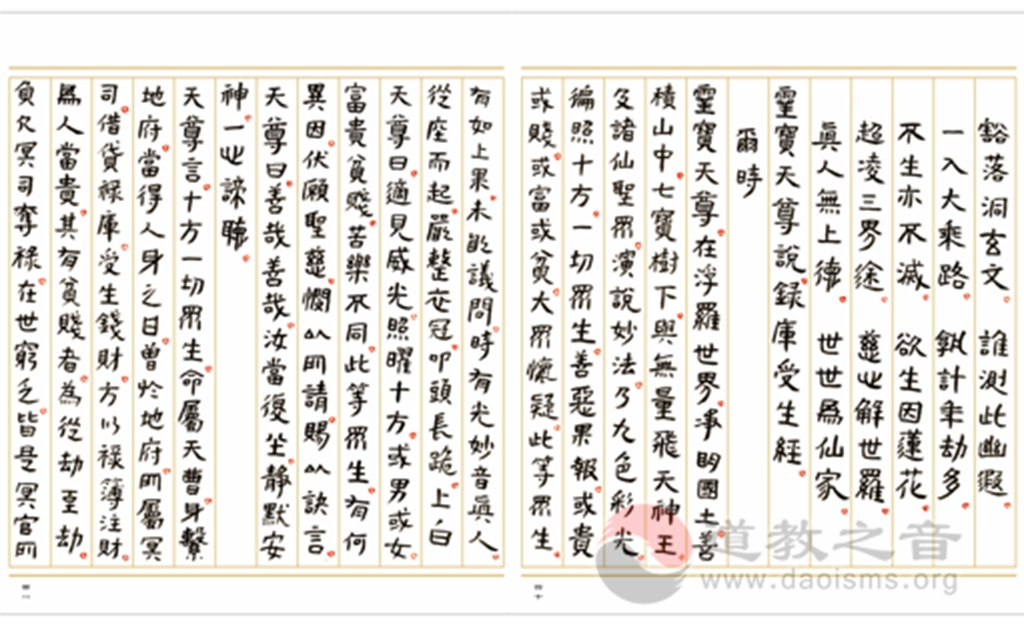 豁落洞玄文 誰測此幽遐
一入大乘路 孰計年劫多
不生亦不滅 欲生因蓮花
超凌三界途 慈心解世羅
眞人無上德 世世爲仙家
靈寶天尊說錄庫受生經
爾時
靈寶天尊在浮羅世界淨明國土善
積山中七寶樹下與無量飛天神王
及諸仙聖眾演說妙法乃九色彩光
徧照十方一切眾生善惡果報或貴
或賤或富或貧大眾懷疑此等眾生
有如上果未敢議問時有光妙音眞人
從座而起嚴整衣冠叩頭長跪上白
天尊曰適見威光照曜十方或男或女
富貴貧賤苦樂不同此等眾生有何
異因伏願聖慈憫以所請賜以訣言
天尊曰善哉善哉汝當復坐靜默安
神一心諦聽
天尊言十方一切眾生命屬天曹身繫
地府當得人身之日曾於地府所屬冥
司借貸祿庫受生錢財方以祿簿注財
爲人當貴其有貧賤者為從劫至劫
負欠冥司奪祿在世窮乏皆是冥官所
道教之音
www.daoisms.org